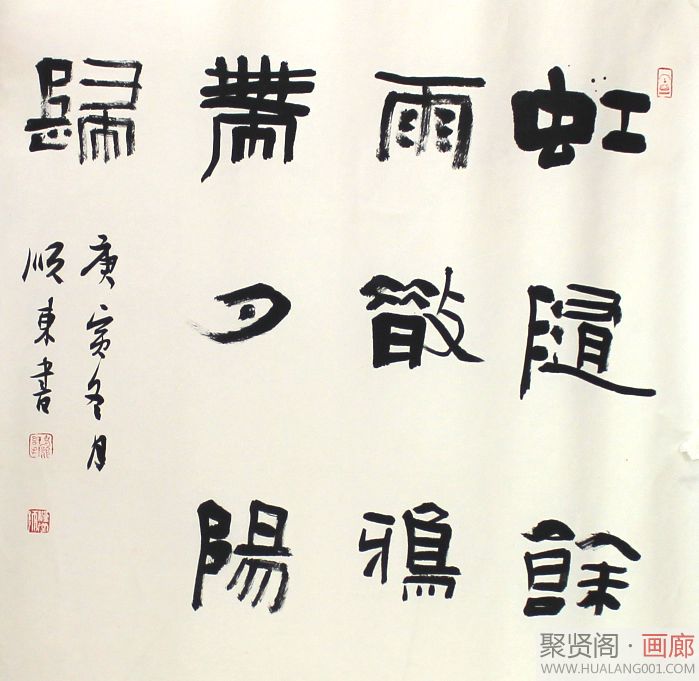 虹隨餘
雨散鴉
帶夕陽
歸
庚寅冬月
順東書
聚贤阁·画廊
WWW.HUALANG001.COM